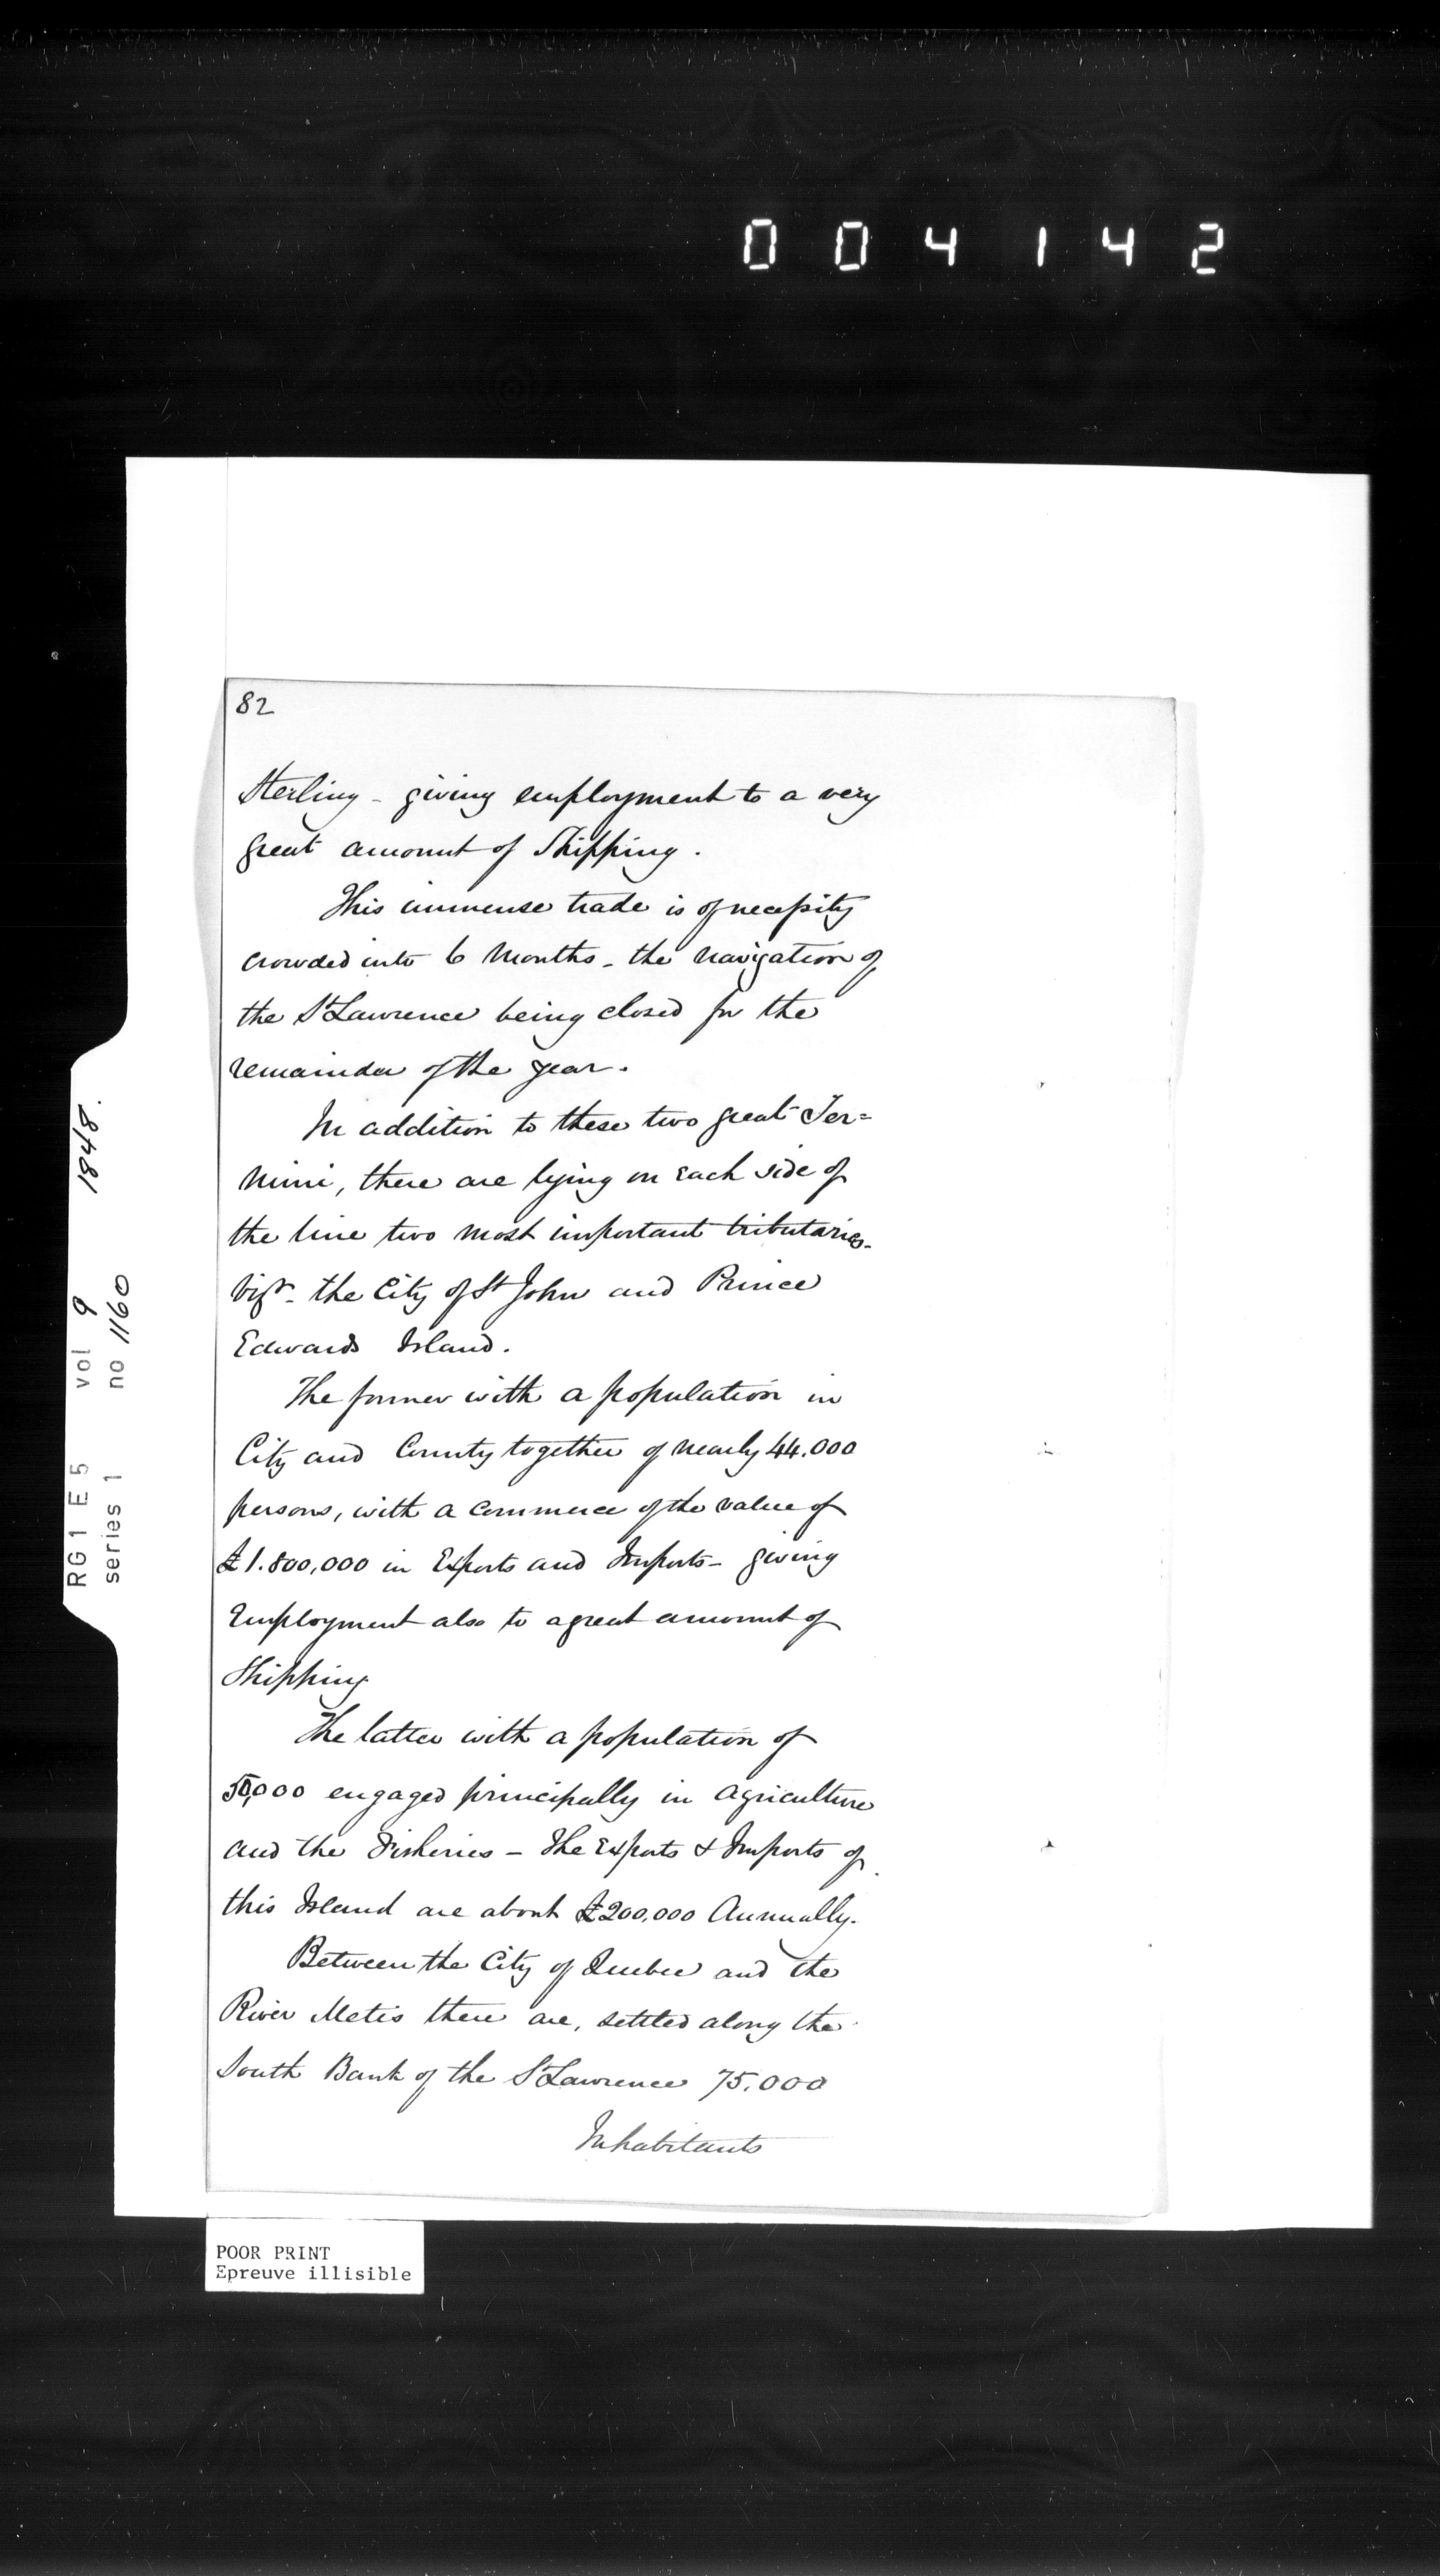 004142
82
Sterling - giving employment to a very
great amount of Shipping.
This immense trade is of necessity
crowded into 6 Months - the navigation of
the St Lawrence being closed for the
remainder of the year.
In addition to these two great Ter=
mini, there are lying on each side of
the line two most important tributaries -
vizt - the City of St John and Prince
Edwards Island.
The former with a population in
City and County together of nearly 44.000
persons, with a commerce of the value of
£1.800,000 in Exports and Imports - giving
Employment also to a great amount of
Shipping
The latter with a population of
50,000 engaged principally in agriculture
and the Fisheries - The Exports & Imports of
this Island are about £200,000 Annually.
Between the City of Quebec and the
River Metis there are, settled along the
South Bank of the St Lawrence 75.000
Inhabitants
RG1 E5 vol 9 1848.
series 1 no 1160
POOR PRINT
Epreuve illisible